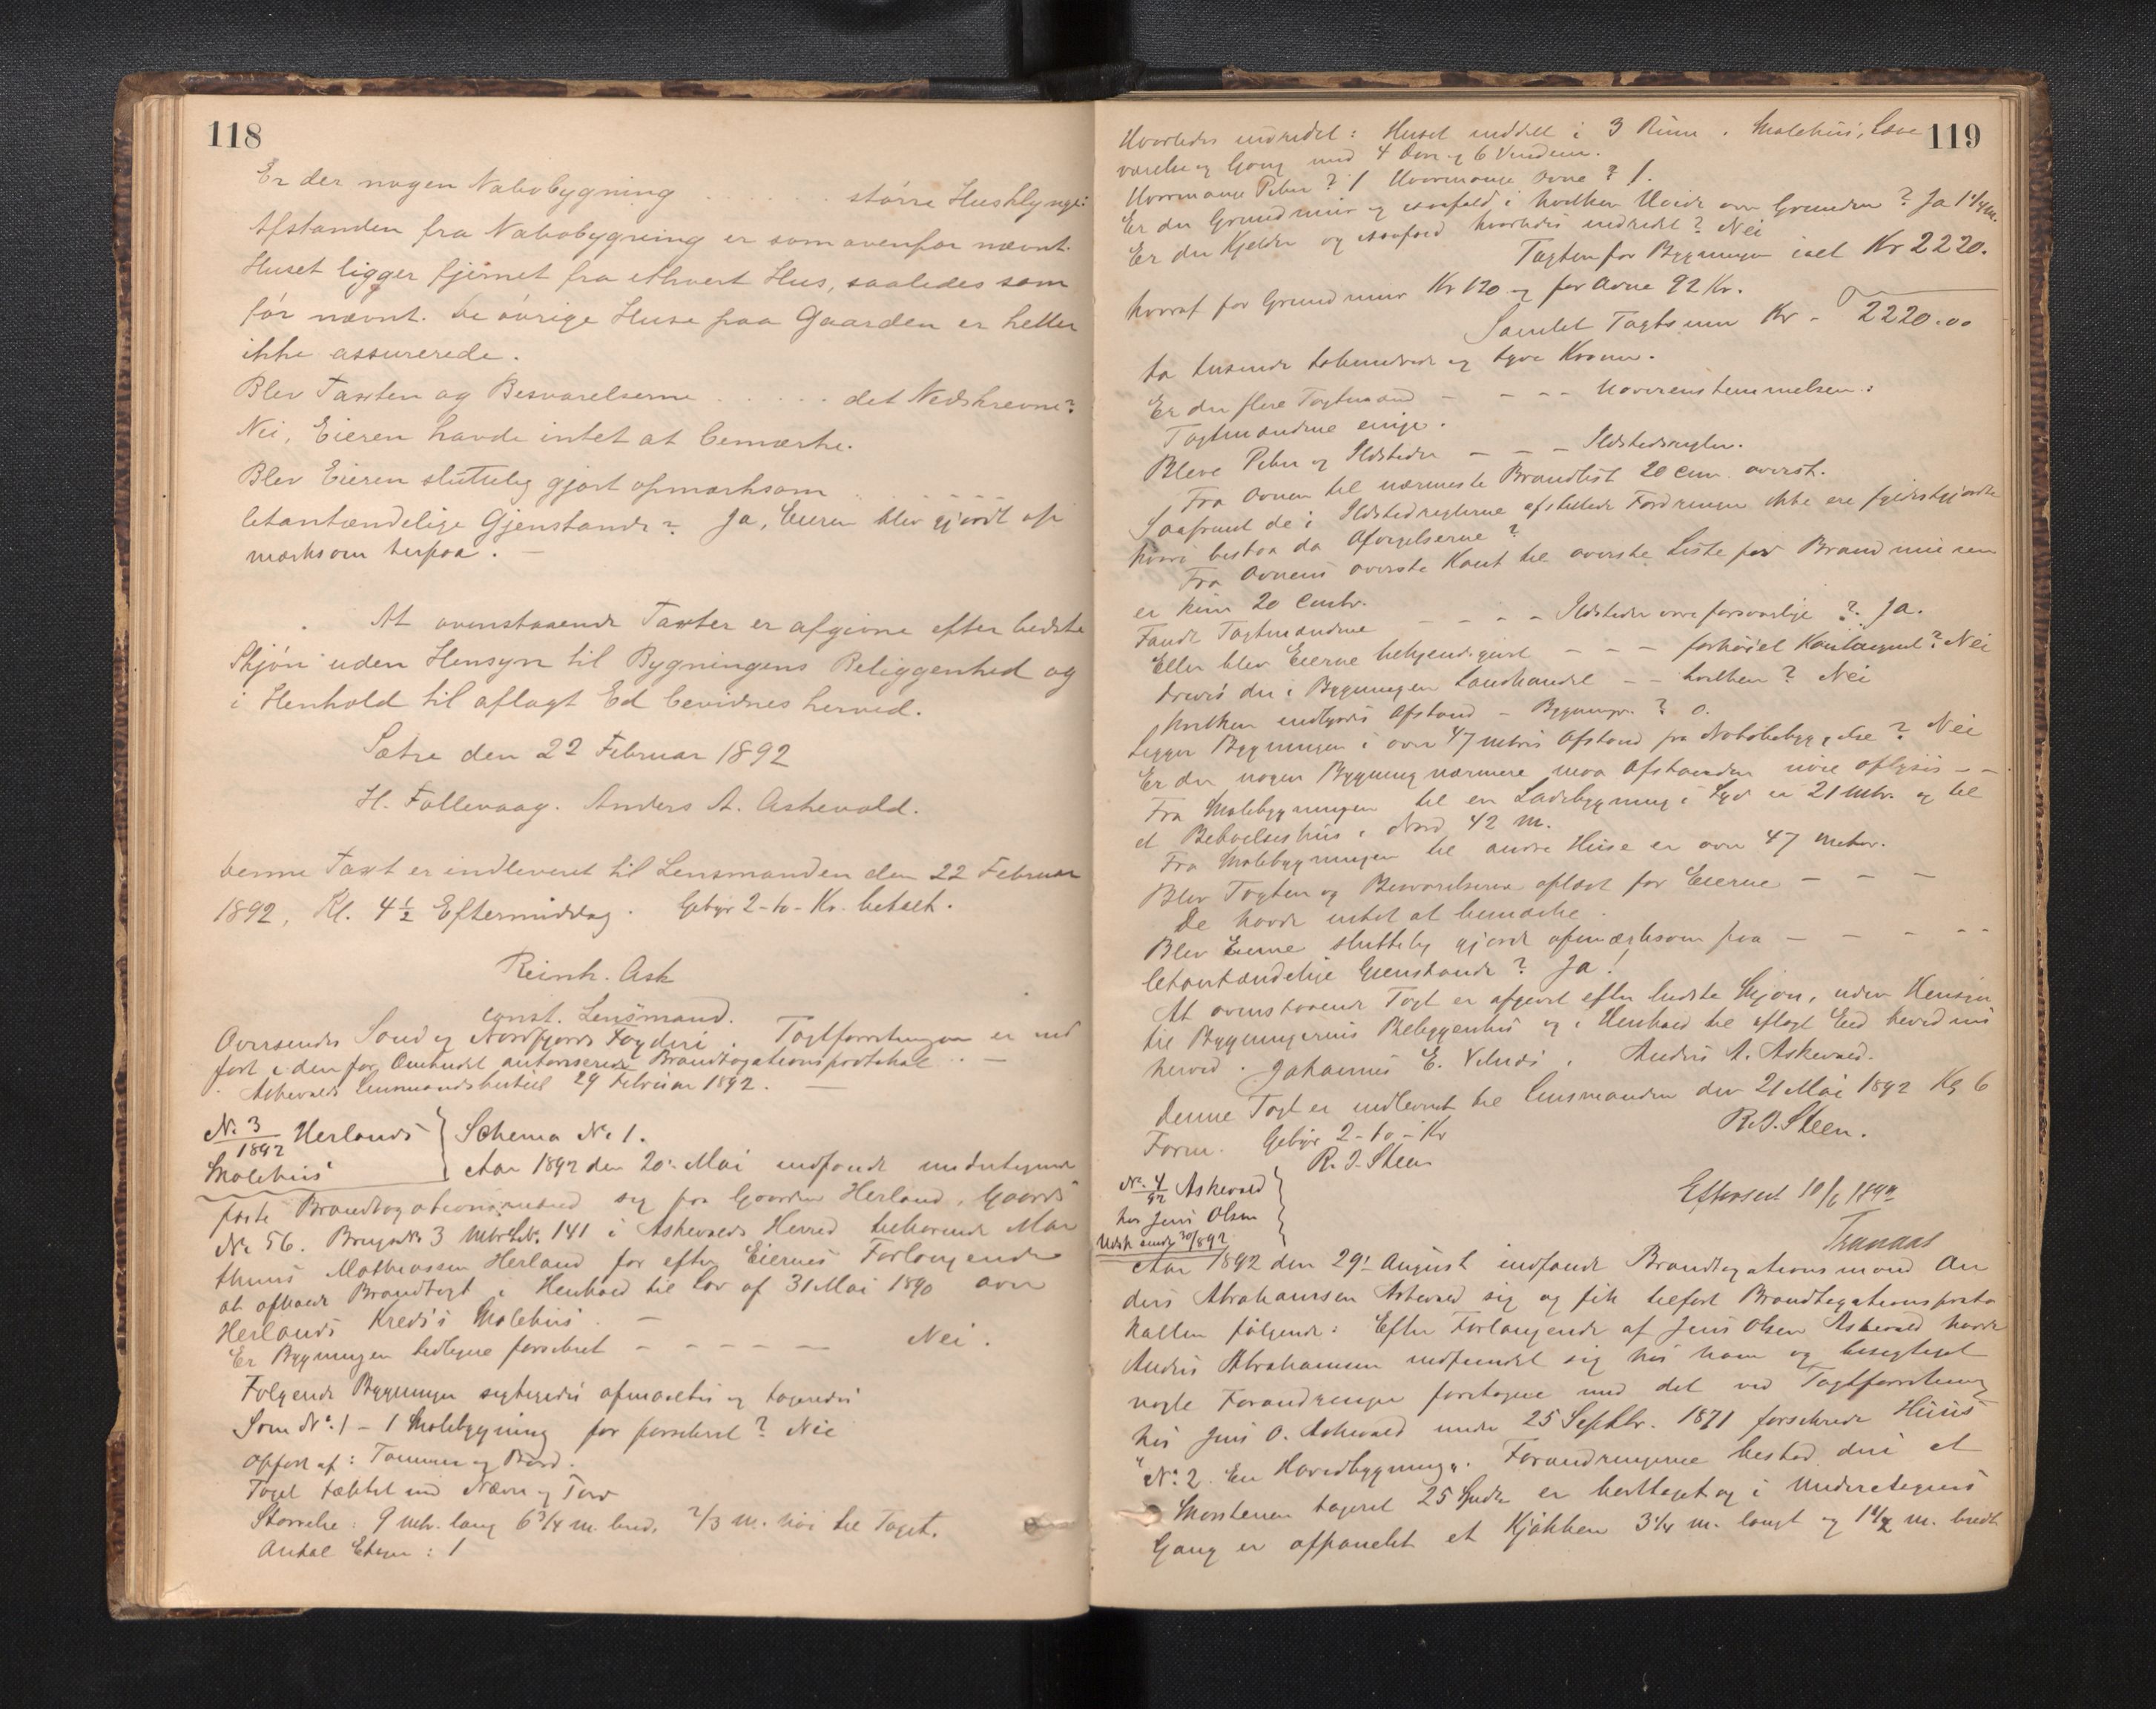 118
Er der nogen Nabobygning . . . . . . større Husklynge:
Afstanden fra Nabobygning er som ovenfor nævnt.
Huset ligger fjernet fra ethvert Hus, saaledes som
før nævnt. De øvrige Huse paa Gaarden er heller
ikke assurerede.
Blev Taxten og Besvarelserne . . . . . det Nedskrevne?
Nei, Eieren havde intet at bemærke.
Blev Eieren sluttelig gjort opmærksom . . - - - -
letantændelige Gjenstande? Ja, Eieren blev gjordt op
mærksom herpaa. -
At ovenstaaende Taxter er afgivne efter bedste
Skjøn uden Hensyn til Bygningens Beliggenhed og
i Henhold til aflagt Ed bevidnes herved.
Sætre den 22 Februar 1892
H. Follevaag. Anders A. Askevold.
Denne Taxt er indleveret til Lensmanden den 22 Februar
1892, Kl. 4½ Eftermiddag. Gebyr 2-10- Kr. betalt.
Reinh. Ask
const. Lensmand.
Oversendes Sønd og Nordfjords Fogderi. Taxtforretningen er ind
ført i den for Ombudet autoriserede Brandtaxationsprotokol .. -
Askevolds Lensmandsbestil 29 Februar 1892. -
No. 3/1892 Herlands } Schema No 1.
Skolehus } Aar 1892 den 20. Mai indfandt undertegnede
faste Brandtaxationsmænd sig paa Gaarden Herland, Gaards
No 56. Brugsno 3 Mtr. Lb. 141 i Askevolds Herred tilhørende Mar
thinus Mathiassen Herland for efter Eiernes Forlangende
at afholde Brandtaxt i Henhold til Lov af 31 Mai 1890 over
Herlands Kreds's Skolehus. -
Er Bygningen tidligere forsikret - - - - - - Nei.
Følgende Bygninger besigtigedes opmaaltes og taxeredes
Som No. 1 - 1 Skolebygning før forsikret? Nei
Opført af: Tømmer og Bord.
Taget tækket med Næver og Torv
Størrelse: 9 mtr. lang 6¾ m. bred, 2/3 m. høi til Taget.
Antal Etager: 1
119
Hvorledes indredet: Huset inddelt i 3 Rum. Skolehus, Lære
værelse og Gang med 4 Døre og 6 Vinduer.
Hvormange Piber? 1 Hvormange Ovne? 1.
Er der Grundmur og isaafald i hvilken Høide over Grunden? Ja 1¼ m.
Er der Kjelder og isaafald hvorledes indredet? Nei
Taxten for Bygningen ialt Kr 2220.
hvoraf for Grundmur Kr 120 og for Ovne 92 Kr.
Samlet Taxtsum Kr. - 2220.00
to tusinde tohundrede og tyve Kroner.
Er der flere Taxtmænd - - - - Uoverensstemmelsen:
Taxtmændene enige.
Bleve Piber og Ildsteder - - - Ildstedsregler.
Fra Ovnen til nærmeste Brandlist 20 cm. øverst.
Saafremt de i Ildstedreglerne opstillede Fordringer ikke ere fyldestgjordte
hvori bestaa da Afvigelserne?
Fra Ovnens øverste Kant til øverste Liste for Brandmuren
er kun 20 Cmtr.
Fandt Taxtmændene - - - - Ildsteder vare forsvarlige? Ja.
Eller blev Eierne bekjendtgjort - - - forhøiet Kontingent? Nei
Drives der i Bygningen Landhandel - - hvilken? Nei
Hvilken indbyrdes Afstand - Bygninger? 0.
Ligger Bygningen i over 47 meters Afstand fra Nabobebyggelse? Nei
Er der nogen Bygning nærmere maa Afstanden nøie oplyses - -
Fra Skolebygningen til en Ladebygning i Syd er 21 mtr. og til
et Beboelseshus i Nord 42 m.
Fra Skolebygningen til andre Huse er over 47 meter.
Blev Taxten og Besvarelserne oplæst for Eierne - - -
De havde intet at bemærke.
Blev Eierne sluttelig gjordt opmærksom paa - - - - -
letantændelige Gjenstande? Ja!
At ovenstaaende Taxt er afgivet efter bedste Skjøn, uden Hensyn
til Bygningernes Beliggenhed og i Henhold til aflagt Eed bevidnes
herved. Johannes E. Velnæs. Anders A. Askevold.
Denne Taxt er indleveret til Lensmanden den 21 Mai 1892 Kl 6
Form. Gebyr 2-10-Kr R. J. Steen.
R. J. Steen
No. 4/92 Askevold
hos Jens Olsen
Efterseet 10/6 189
1892 den 29. August indfandt Brandtaxationsmand An
ders Abrahamsen Askevold sig og fik tilført Brandtaxationsproto
kollen følgende: Efter Forlangende af Jens Olsen Askevold havde
Anders Abrahamsen indfundet sig hos ham og besigtiget
nogle Forandringer foretagne med det ved Taxtforretning
hos Jens O. Askevold under 25 Septbr. 1871 forsikrede Huus
"No. 2. En Hovedbygning". Forandringerne bestod deri at
Skorstenen taxeret 25 Spdlr er borttaget og i Underetagens
Gang er afpanelet et Kjøkken 3¼ m. langt og 1½ m. bredt